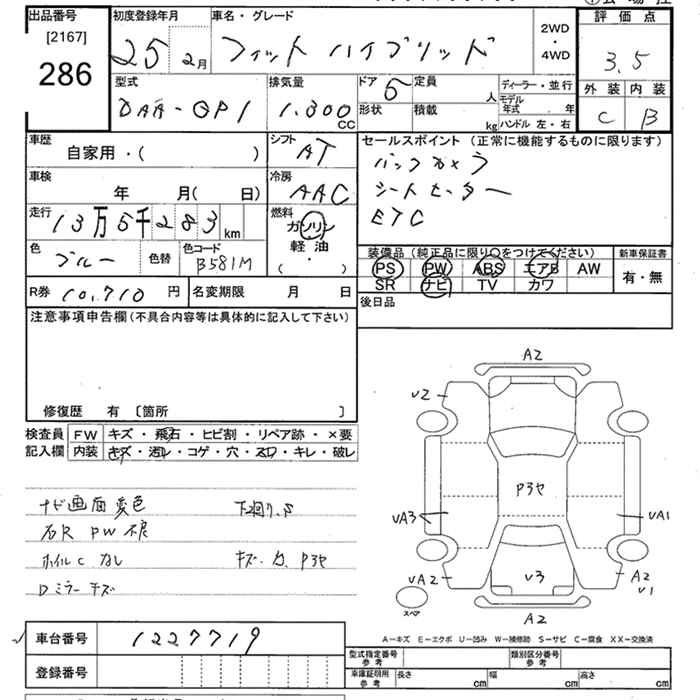 出品番号 初度登録年月 車名・グレード 2WD・4WD 評価点
[2167]
286
25 2月 フィット ハイブリッド 3.5
型式 排気量 ドア 5 定員 人 ディーラー・並行 外装 内装
DAA-GP1 1,300 CC 形状 積載 kg モデル年式 年 C B
ハンドル 左・右
車歴 シフト セールスポイント (正常に機能するものに限ります)
自家用・( ) AT バックカメラ
車検 冷房 シートヒーター
年 月( 日) AAC ETC
走行 燃料
13万5千283km ガソリン
軽油
・( )
色 ブルー 色替 色コード B581M
装備品 (純正品に限り○をつけてください) 新車保証書
PS PW ABS エアB AW 有・無
SR ナビ TV カワ
R券 10,710 円 名変期限 月 日 後日品
注意事項申告欄 (不具合内容等は具体的に記入して下さい)
修復歴 有 〔箇所 〕
検査員 FW キズ・飛石・ヒビ割・リペア跡・×要
記入欄 内装 キズ・汚レ・コゲ・穴・スレ・キレ・破レ
ナビ画面変色 下廻り.S
右R PW不良
ホイルC なし キズ・凹.Pヨヤ
Dミラーキズ
A2
U2
Pヨヤ
UA3 UA1
UA2 U3 A2
U1
スペア
A2
A－キズ E－エクボ U－凹み W－補修跡 S－サビ C－腐食 XX－交換済
車台番号 1227719
登録番号
型式指定番号 参考 類別区分番号 参考
車庫証明用 参考 長さ cm 幅 cm 高さ cm